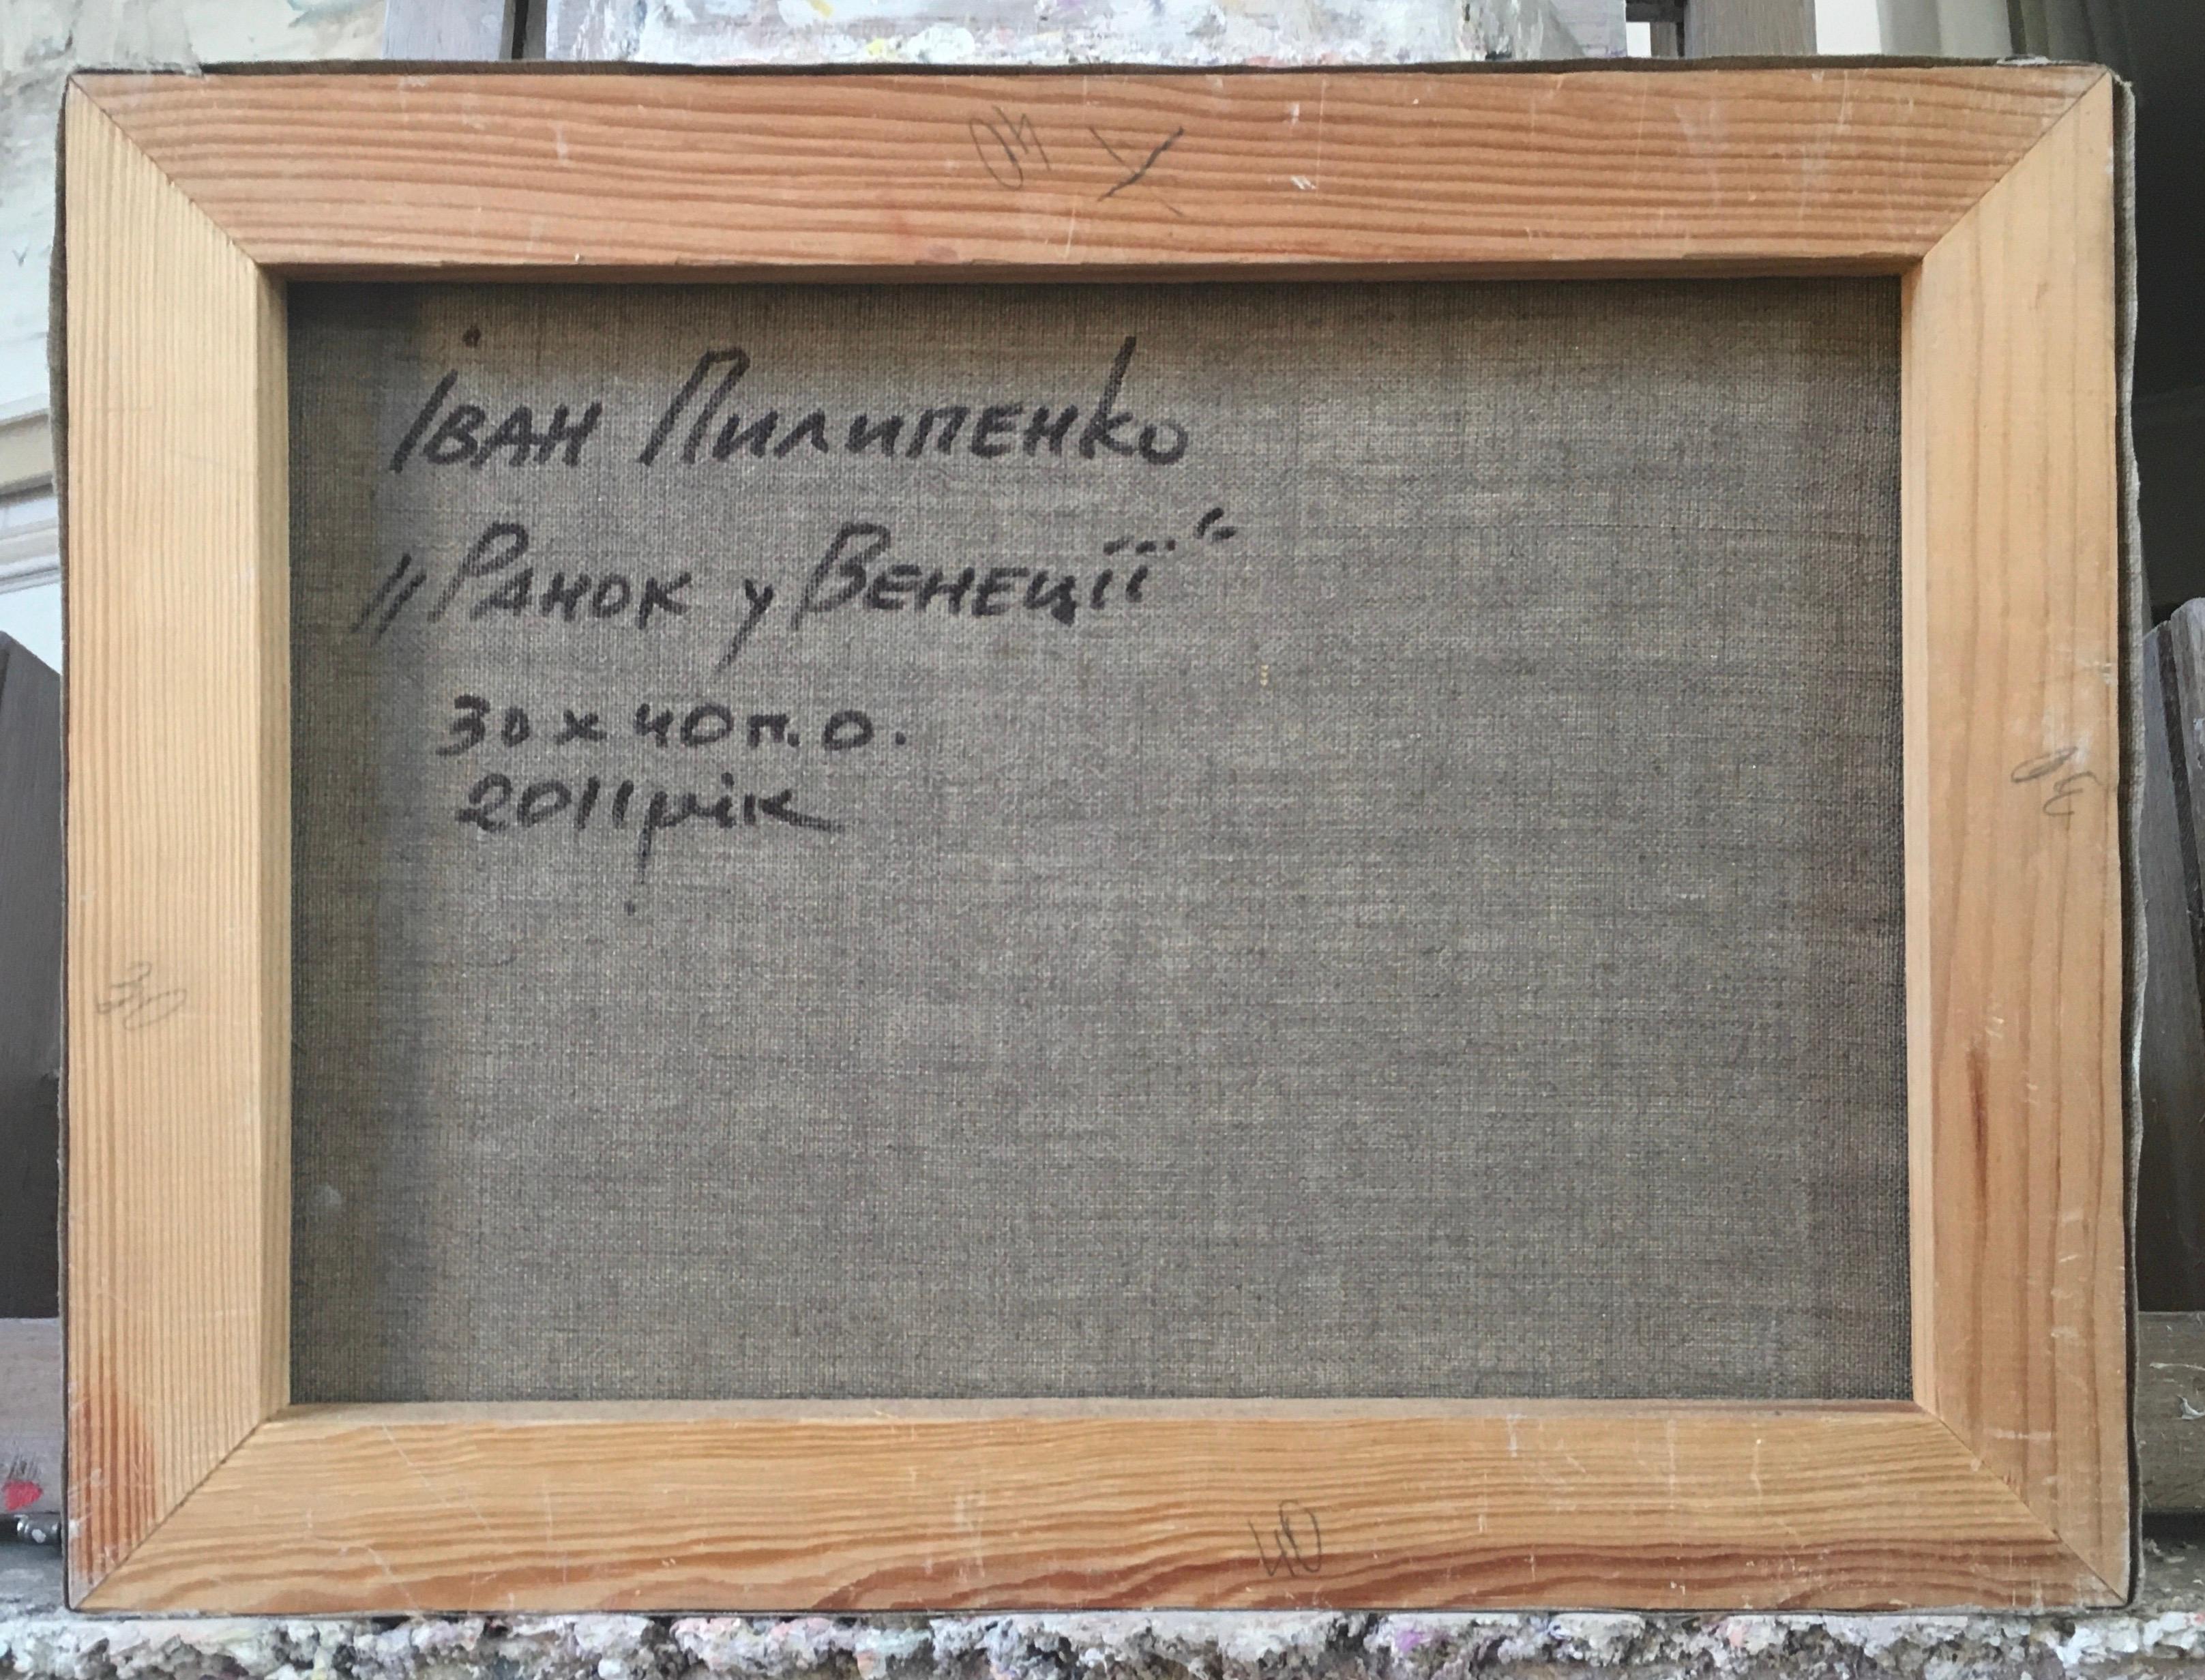 40
Іван Пилипенко
„Ранок у Венеції“
30 х 40 п.о.
2011 рік
30
30
40